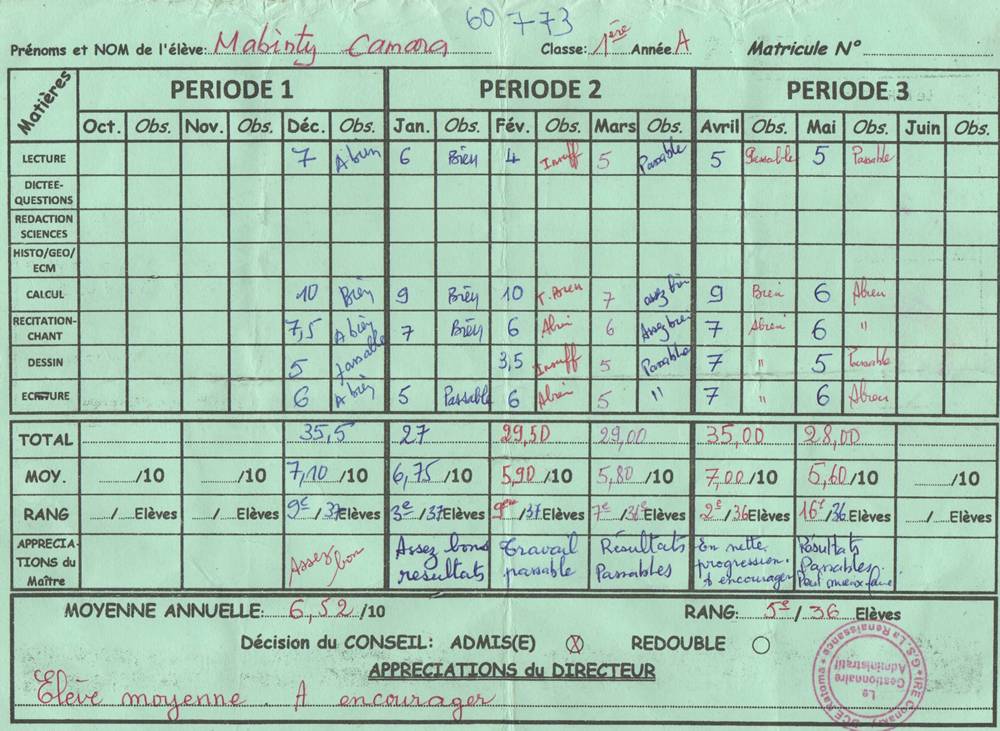 60 773
Prénoms et NOM de l'élève: Mabinty Camara Classe: 1ère Année A Matricule N°
Matières PERIODE 1 PERIODE 2 PERIODE 3
Oct. Obs. Nov. Obs. Déc. Obs. Jan. Obs. Fév. Obs. Mars Obs. Avril Obs. Mai Obs. Juin Obs.
LECTURE 7 A bien 6 Bien 4 Insuff 5 Passable 5 Passable 5 Passable
DICTEE-
QUESTIONS
REDACTION
SCIENCES
HISTO/GEO/
ECM
CALCUL 10 Bien 9 Bien 10 T. Bien 7 assez bien 9 Bien 6 Abien
RECITATION-
CHANT 7,5 A bien 7 Bien 6 Abien 6 Assez bien 7 Abien 6 "
DESSIN 5 passable 3,5 Insuff 5 Passable 7 " 5 Passable
ECRITURE 6 A bien 5 Passable 6 Abien 5 " 7 " 6 Abien
TOTAL 35,5 27 29,50 29,00 35,00 28,00
MOY. /10 /10 7,10 /10 6,75 /10 5,90 /10 5,80 /10 7,00 /10 5,60 /10 /10
RANG / Elèves / Elèves 9e /37 Elèves 3e /37 Elèves /37 Elèves 7e /36 Elèves 2e /36 Elèves 16e /36 Elèves / Elèves
APPRECIA-
TIONS du
Maître
Assez bon
Assez bons
resultats
Travail
passable
Résultats
Passables
En nette
progression.
A encourager
Résultats
Passables.
Peut mieux faire
MOYENNE ANNUELLE: 6,52 /10 RANG: 5e / 36 Elèves
Décision du CONSEIL: ADMIS(E) X REDOUBLE
APPRECIATIONS du DIRECTEUR
Elève moyenne. A encourager
G.S. La Renaissance
Le
Gestionnaire
Administratif